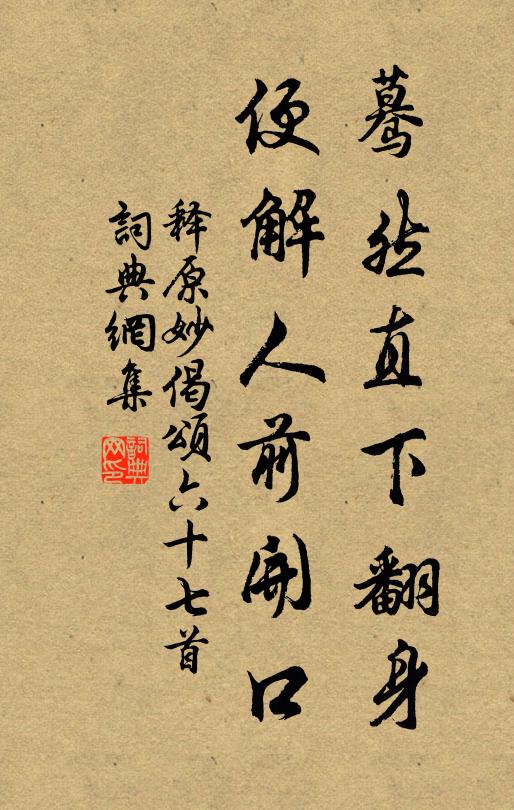 驀然直下翻身
便解人前開口
释原妙偈頌六十七首
詞典網集
詞典网印